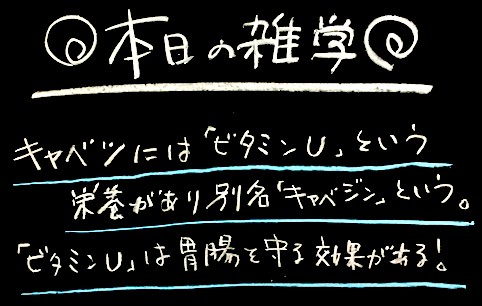 本日の雑学
キャベツには「ビタミンU」という
栄養があり別名「キャベジン」という。
「ビタミンU」は胃腸を守る効果がある!